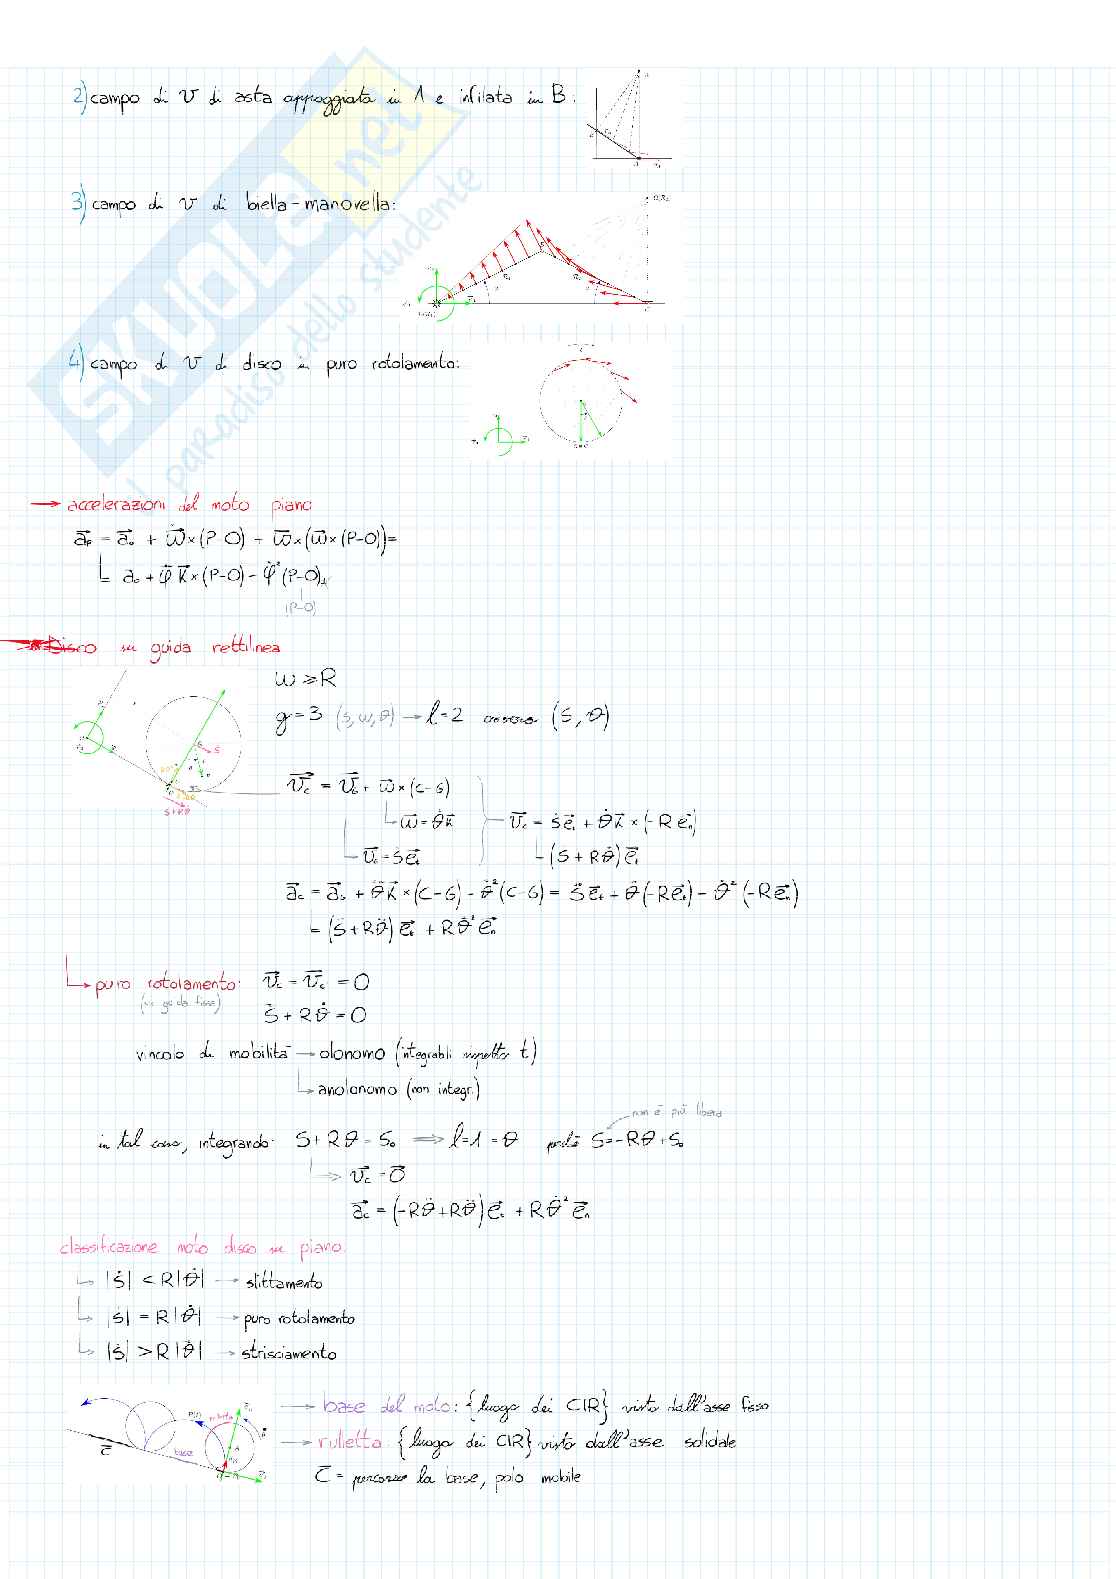 2) campo di v di asta appoggiata in A e infilata in B:
3) campo di v di biella-manovella:
4) campo di v di disco in puro rotolamento:
SKUOLA.net
il paradiso dello studente
→ accelerazioni del moto piano
a⃗p = a⃗o + ω⃗̇×(P-O) + ω⃗×(ω⃗×(P-O))=
= ao + φ̈ k⃗×(P-O) - φ̇²(P-O)⊥
(P-O)
Disco su guida rettilinea
ω ≥ R
g=3 (s,ω,θ) → l=2 ossia (s,θ)
v⃗c = v⃗G + ω⃗×(C-G)
ω⃗=θ̇k⃗
v⃗G=ṡe⃗t
v⃗c = ṡe⃗t + θ̇k⃗×(-Re⃗n)
(ṡ+Rθ̇)e⃗t
s+Rθ
a⃗c = a⃗G + θ̈k⃗×(C-G) - θ̇²(C-G) = s̈e⃗t + θ̈(-Re⃗t) - θ̇²(-Re⃗n)
= (s̈+Rθ̈)e⃗t + Rθ̇²e⃗n
→ puro rotolamento: v⃗c = v⃗c = 0
(su guida fissa)
ṡ + Rθ̇ = 0
vincolo di mobilità → olonomo (integrabili rispetto t)
→ anolonomo (non integr.)
non è più libera
in tal caso, integrando: s+Rθ=s₀ ⟹ l=1=θ perché s=-Rθ+s₀
⟹ v⃗c=0⃗
a⃗c=(-Rθ̈+Rθ̈)e⃗t + Rθ̇²e⃗n
classificazione moto disco su piano:
|ṡ| < R|θ̇| → slittamento
|ṡ| = R|θ̇| → puro rotolamento
|ṡ| > R|θ̇| → strisciamento
→ base del moto: {luogo dei CIR} visto dall'asse fisso
rulletta
base
→ rulletta: {luogo dei CIR} visto dall'asse solidale
C = percorre la base, polo mobile